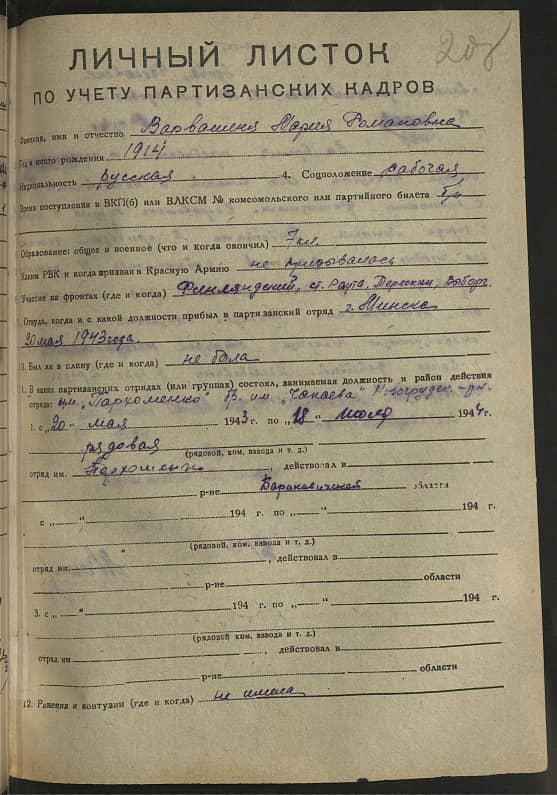 208
ЛИЧНЫЙ ЛИСТОК
ПО УЧЕТУ ПАРТИЗАНСКИХ КАДРОВ
Фамилия, имя и отчество Варвашеня Мария Романовна
Год и место рождения 1914
Национальность русская 4. Соцположение рабочая
Время поступления в ВКП(б) или ВЛКСМ № комсомольского или партийного билета б/п
Образование: общее и военное (что и когда окончил) 7 кл.
Каким РВК и когда призван в Красную Армию не призывалась
Участие на фронтах (где и когда) Финляндский, ст. Раута, Териоки, Выборг.
Откуда, когда и с какой должности прибыл в партизанский отряд г. Минска
20 мая 1943 года.
10. Был ли в плену (где и когда) не была
11. В каких партизанских отрядах (или группах) состоял, занимаемая должность и район действия
отряда: им. "Пархоменко" бр. им. "Чапаева" р-н.
1. с „20" мая 1943 г. по „18" июля 1944 г.
рядовая
(рядовой, ком. взвода и т. д.)
отряд им. Пархоменко, действовал в
р-не Барановичская области
с „ " 194 г. по „ " 194 г.
(рядовой, ком. взвода и т. д.)
отряд им. , действовал в
р-не области
3. с „ " 194 г. по „ " 194 г.
(рядовой, ком. взвода и т. д.)
отряд им , действовал в
р-не области
12. Ранения и контузии (где и когда) не имела